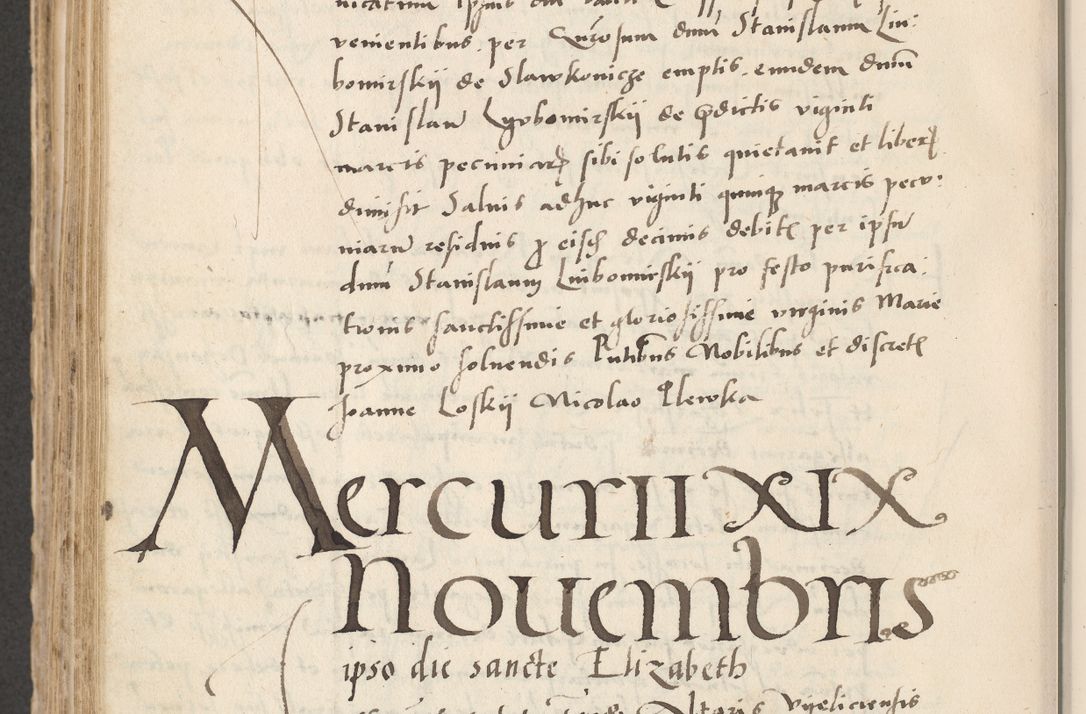 venientibus per Generosum dnum Stanislaum Liu:
bomirskij de Slawkonicze emptis. eundem dnum
Stanislaum Lyvbomirskij de predictis viginti
marcis pecuniarum sibi solutis quietauit et liberum
dimisit Saluis adhuc viginti quinque marcis pecu:
niarum residuis pro eisdem decimis debitis per ipsum
dnum Stanislaum Luibomirskij pro festo purifica:
tionis sanctissime et gloriosissime virginis Marie
proximo soluendis Putibus Nobilibus et discretis
Joanne Loskij Nicolao Plewka
Mercurii XIX
Nouembris
ipso die sancte Elizabeth
Altaris Vyeliciensis